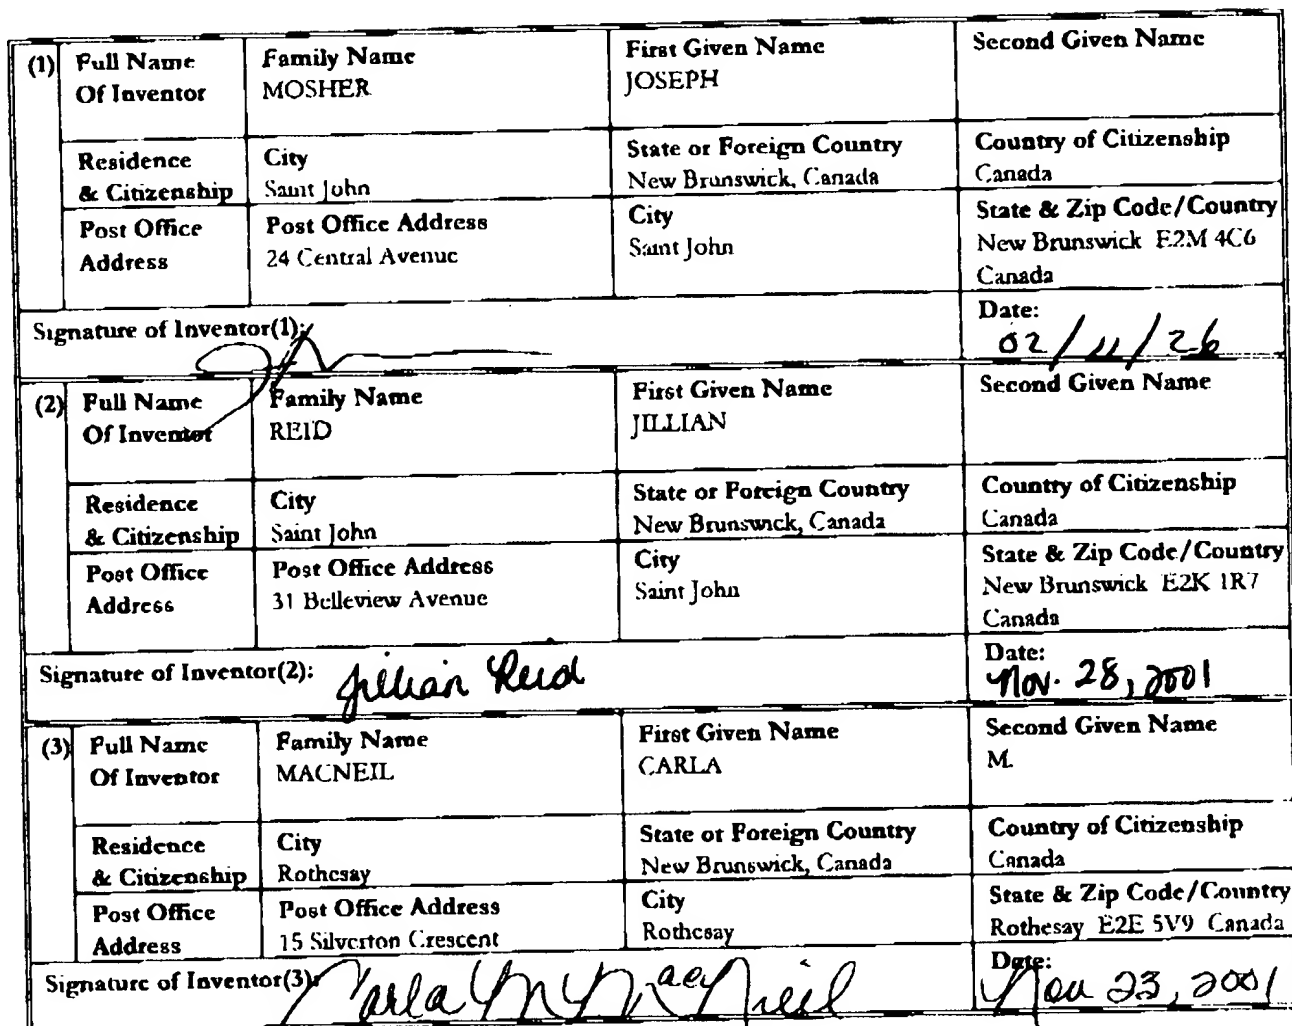 (1) Full Name Of Inventor
Family Name
MOSHER
First Given Name
JOSEPH
Second Given Name
Residence & Citizenship
City
Saint John
State or Foreign Country
New Brunswick, Canada
Country of Citizenship
Canada
Post Office Address
Post Office Address
24 Central Avenue
City
Saint John
State & Zip Code/Country
New Brunswick E2M 4C6
Canada
Signature of Inventor(1):
Date:
02/11/26
(2) Full Name Of Inventor
Family Name
REID
First Given Name
JILLIAN
Second Given Name
Residence & Citizenship
City
Saint John
State or Foreign Country
New Brunswick, Canada
Country of Citizenship
Canada
Post Office Address
Post Office Address
31 Belleview Avenue
City
Saint John
State & Zip Code/Country
New Brunswick E2K 1R7
Canada
Signature of Inventor(2): Jillian Reid
Date:
Nov. 28, 2001
(3) Full Name Of Inventor
Family Name
MACNEIL
First Given Name
CARLA
Second Given Name
M.
Residence & Citizenship
City
Rothesay
State or Foreign Country
New Brunswick, Canada
Country of Citizenship
Canada
Post Office Address
Post Office Address
15 Silverton Crescent
City
Rothesay
State & Zip Code/Country
Rothesay E2E 5V9 Canada
Signature of Inventor(3): Carla M MacNeil
Date:
Nov 23, 2001